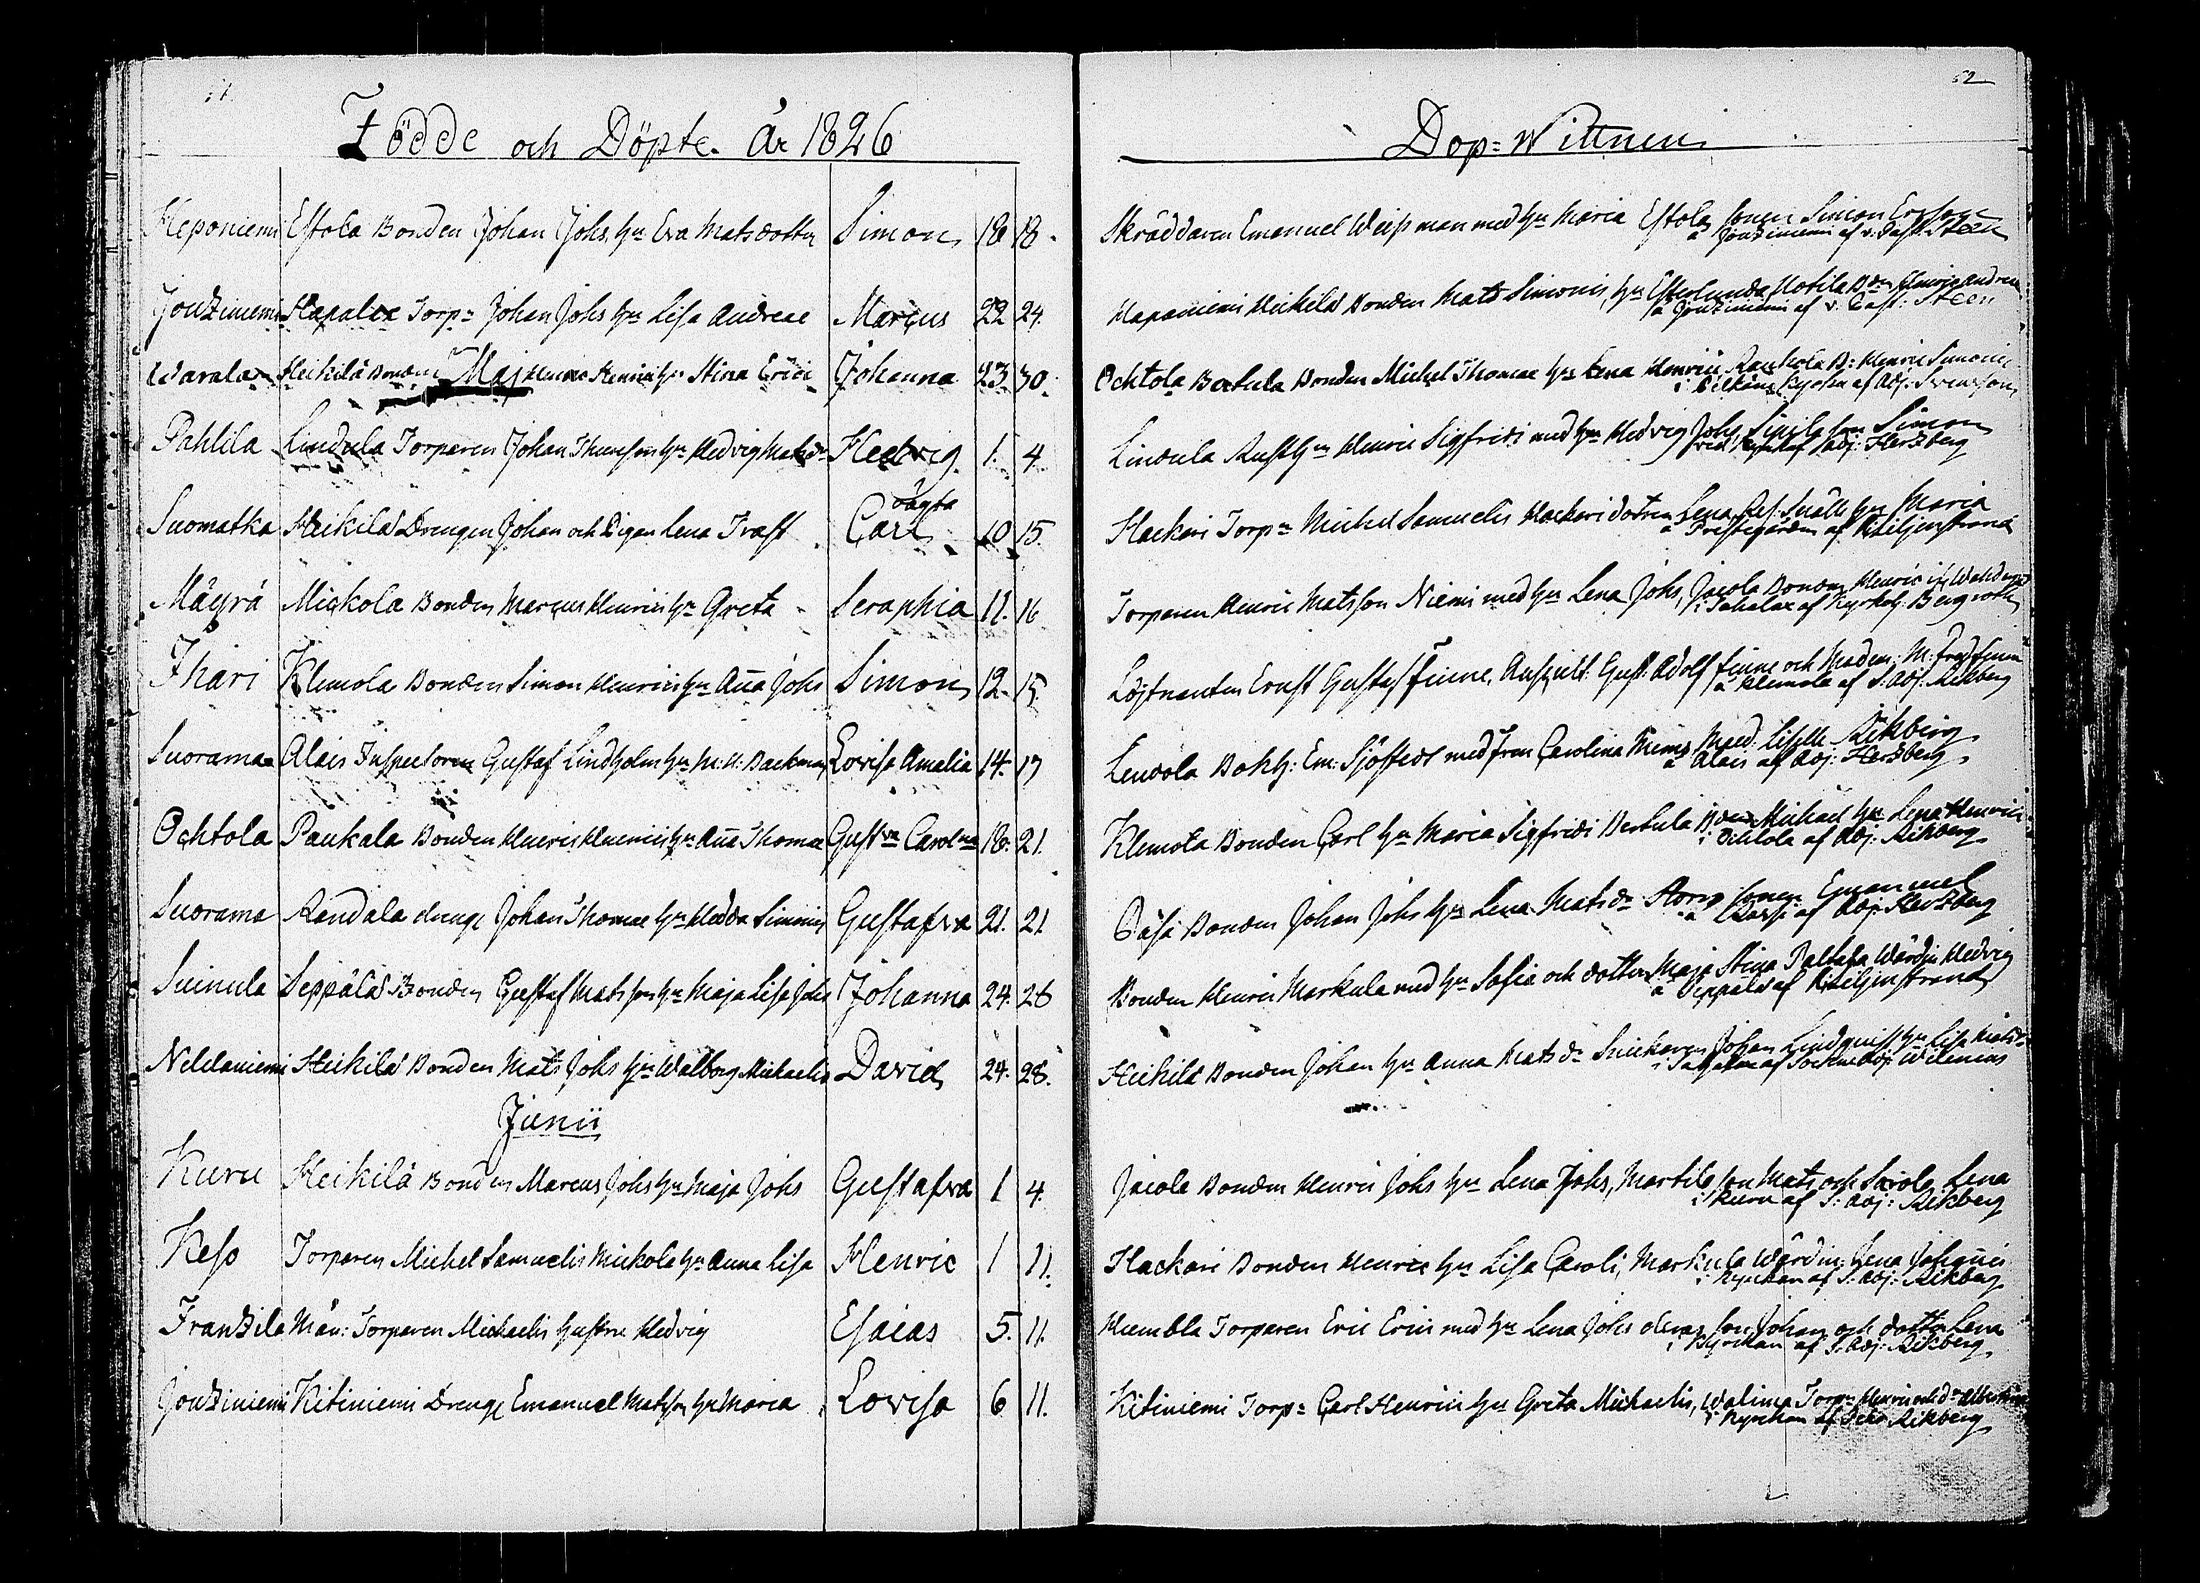 51.
Födde och Döpte År 1826
Heponiemi Estola Bonden Johan Johs hu Eva Matsdotter Simon 18 18.
Joutziniemi Hapalax Torp: Johan Johs hu Lisa Andreae Marcus 22 24.
Warala Heikilä Bonden Henric Henrici hu Stina Erici Johanna 23 30.
Maj
Pahlila Lindula Torparen Johan Thureson hu Hedvig Matsdr Hedvig 1. 4
oägta
Suomatka Heikilä Drengen Johan och Pigan Lena Trast Carl 10 15.
Mäyrä Mickola Bonden Marcus Henrici hu Greta Seraphia 11. 16
Ihari Klemola Bonden Simon Henrici hu Anna Johs Simon 12. 15
Suorama Alais Inspectoren Gustaf Lindholm hu M: U: Backman Lovisa Amalia 14. 17
Ochtola Paukala Bonden Henric Henrici hu Anna Thomae Gustva Carolna 18. 21.
Suorama Randala dreng Johan Thomae hu Hedda Simonis Gustafva 21. 21
Suinula Seppälä Bonden Gustaf Matsson hu Maja Lisa Johs Johanna 24. 28
Neldaniemi Heikilä Bonden Mats Johs hu Walborg Michaelis David 24. 28.
Junii
Kuru Heikilä Bonden Marcus Johs hu Maja Johs Gustafva 1 4.
Keso Torparen Michel Samuelis Mickola hu Anna Lisa Henric 1 11.
Frantzila Män: Torparen Michaelis hustru Hedvig Esaias 5. 11.
Joutziniemi Kitiniemi Dreng Emanuel Matsson hu Maria Lovisa 6 11.
52
Dop-Wittnen
Skräddaren Emanuel Weissman med hu Maria Estola sonen Simon Ersson
å Joutziniemi af v. Past. Steen
Haponiemi Heikilä Bonden Mats Simonis, hu Bden Henric Andreae
å Joutziniemi af v. Past: Steen
Ochtola Bertula Bonden Michel Thomae hu Lena Henrici, Paukala B: Henric Simonis
i kyrkan af Adj. Svensson
Lindula Rusth Henric Sigfridi med hu Hedvig Johs, son Simon
af Adj: Hertzberg
Hackari Torp: Michel Samuelis Hackari dotren Lena, Ref. Snäll hu Maria
å Prestegården af Kiljenstrand
Torparen Henric Matsson Niemi med hu Lena Johs, Jacola Bonden Henric
i Sahalax af Bergroth
Löjtnanten Ernst Gustaf Finne, Auscult. Gust. Adolf Finne och Madem: M. Fred Finne
å Klemola af S: Adj: Aikberg
Lendola Bokh: Em: Sjöstedt med frun Carolina Maed. Liselle Aikberg
å Alais af Adj: Hertzberg
Klemola Bonden Carl hu Maria Sigfridi Bertula Bden Michael hu Lena Henrici
i Ochtola af Adj: Aikberg
Päsä Bonden Johan Johs hu Lena Matsdr Storp sonen Emanuel
af Adj: Hertzberg
Bonden Henric Markula med hu Sofia och dottren Maja Stina Paltala Wärdin Hedvig
å Seppälä af Kiljenstrand
Heikilä Bonden Johan hu Anna Matsdr Snickaren Johan Lindquist hu Lisa Matsdr
i af Sockne Adj. Wilenius
Jacola Bonden Henric Johs hu Lena Johs, Martila son Mats och Lena
i Kuru af S: Adj: Aikberg
Hackari Bonden Henric hu Lisa Caroli, Markula Wärdin: Lena Johannis
i Kyrckan af S: Adj: Aikberg
Humbla Torparen Eric Erici med hu Lena Johs deras son Johan och dotter Lena
i Kyrckan af S: Adj: Aikberg
Kitiniemi Torp: Carl Henrici hu Greta Michaelis, Walima Torp: Henric
i Kyrckan af Aikberg